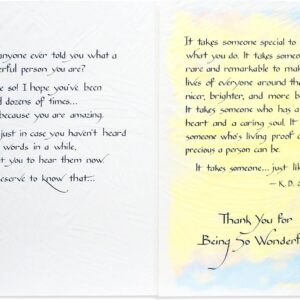 anyone ever told you what a
person you are?
so! I hope you've been
dozens of times...
because you are amazing.
just in case you haven't heard
words in a while,
you to hear them now.
deserve to know that...
It takes someone special to
what you do. It takes someone
rare and remarkable to make
lives of everyone around
nicer, brighter, and more
It takes someone who has a
heart and a caring soul. It
someone who's living proof
precious a person can be.
It takes someone... just
— K. D.
Thank You for
Being So Wonderful